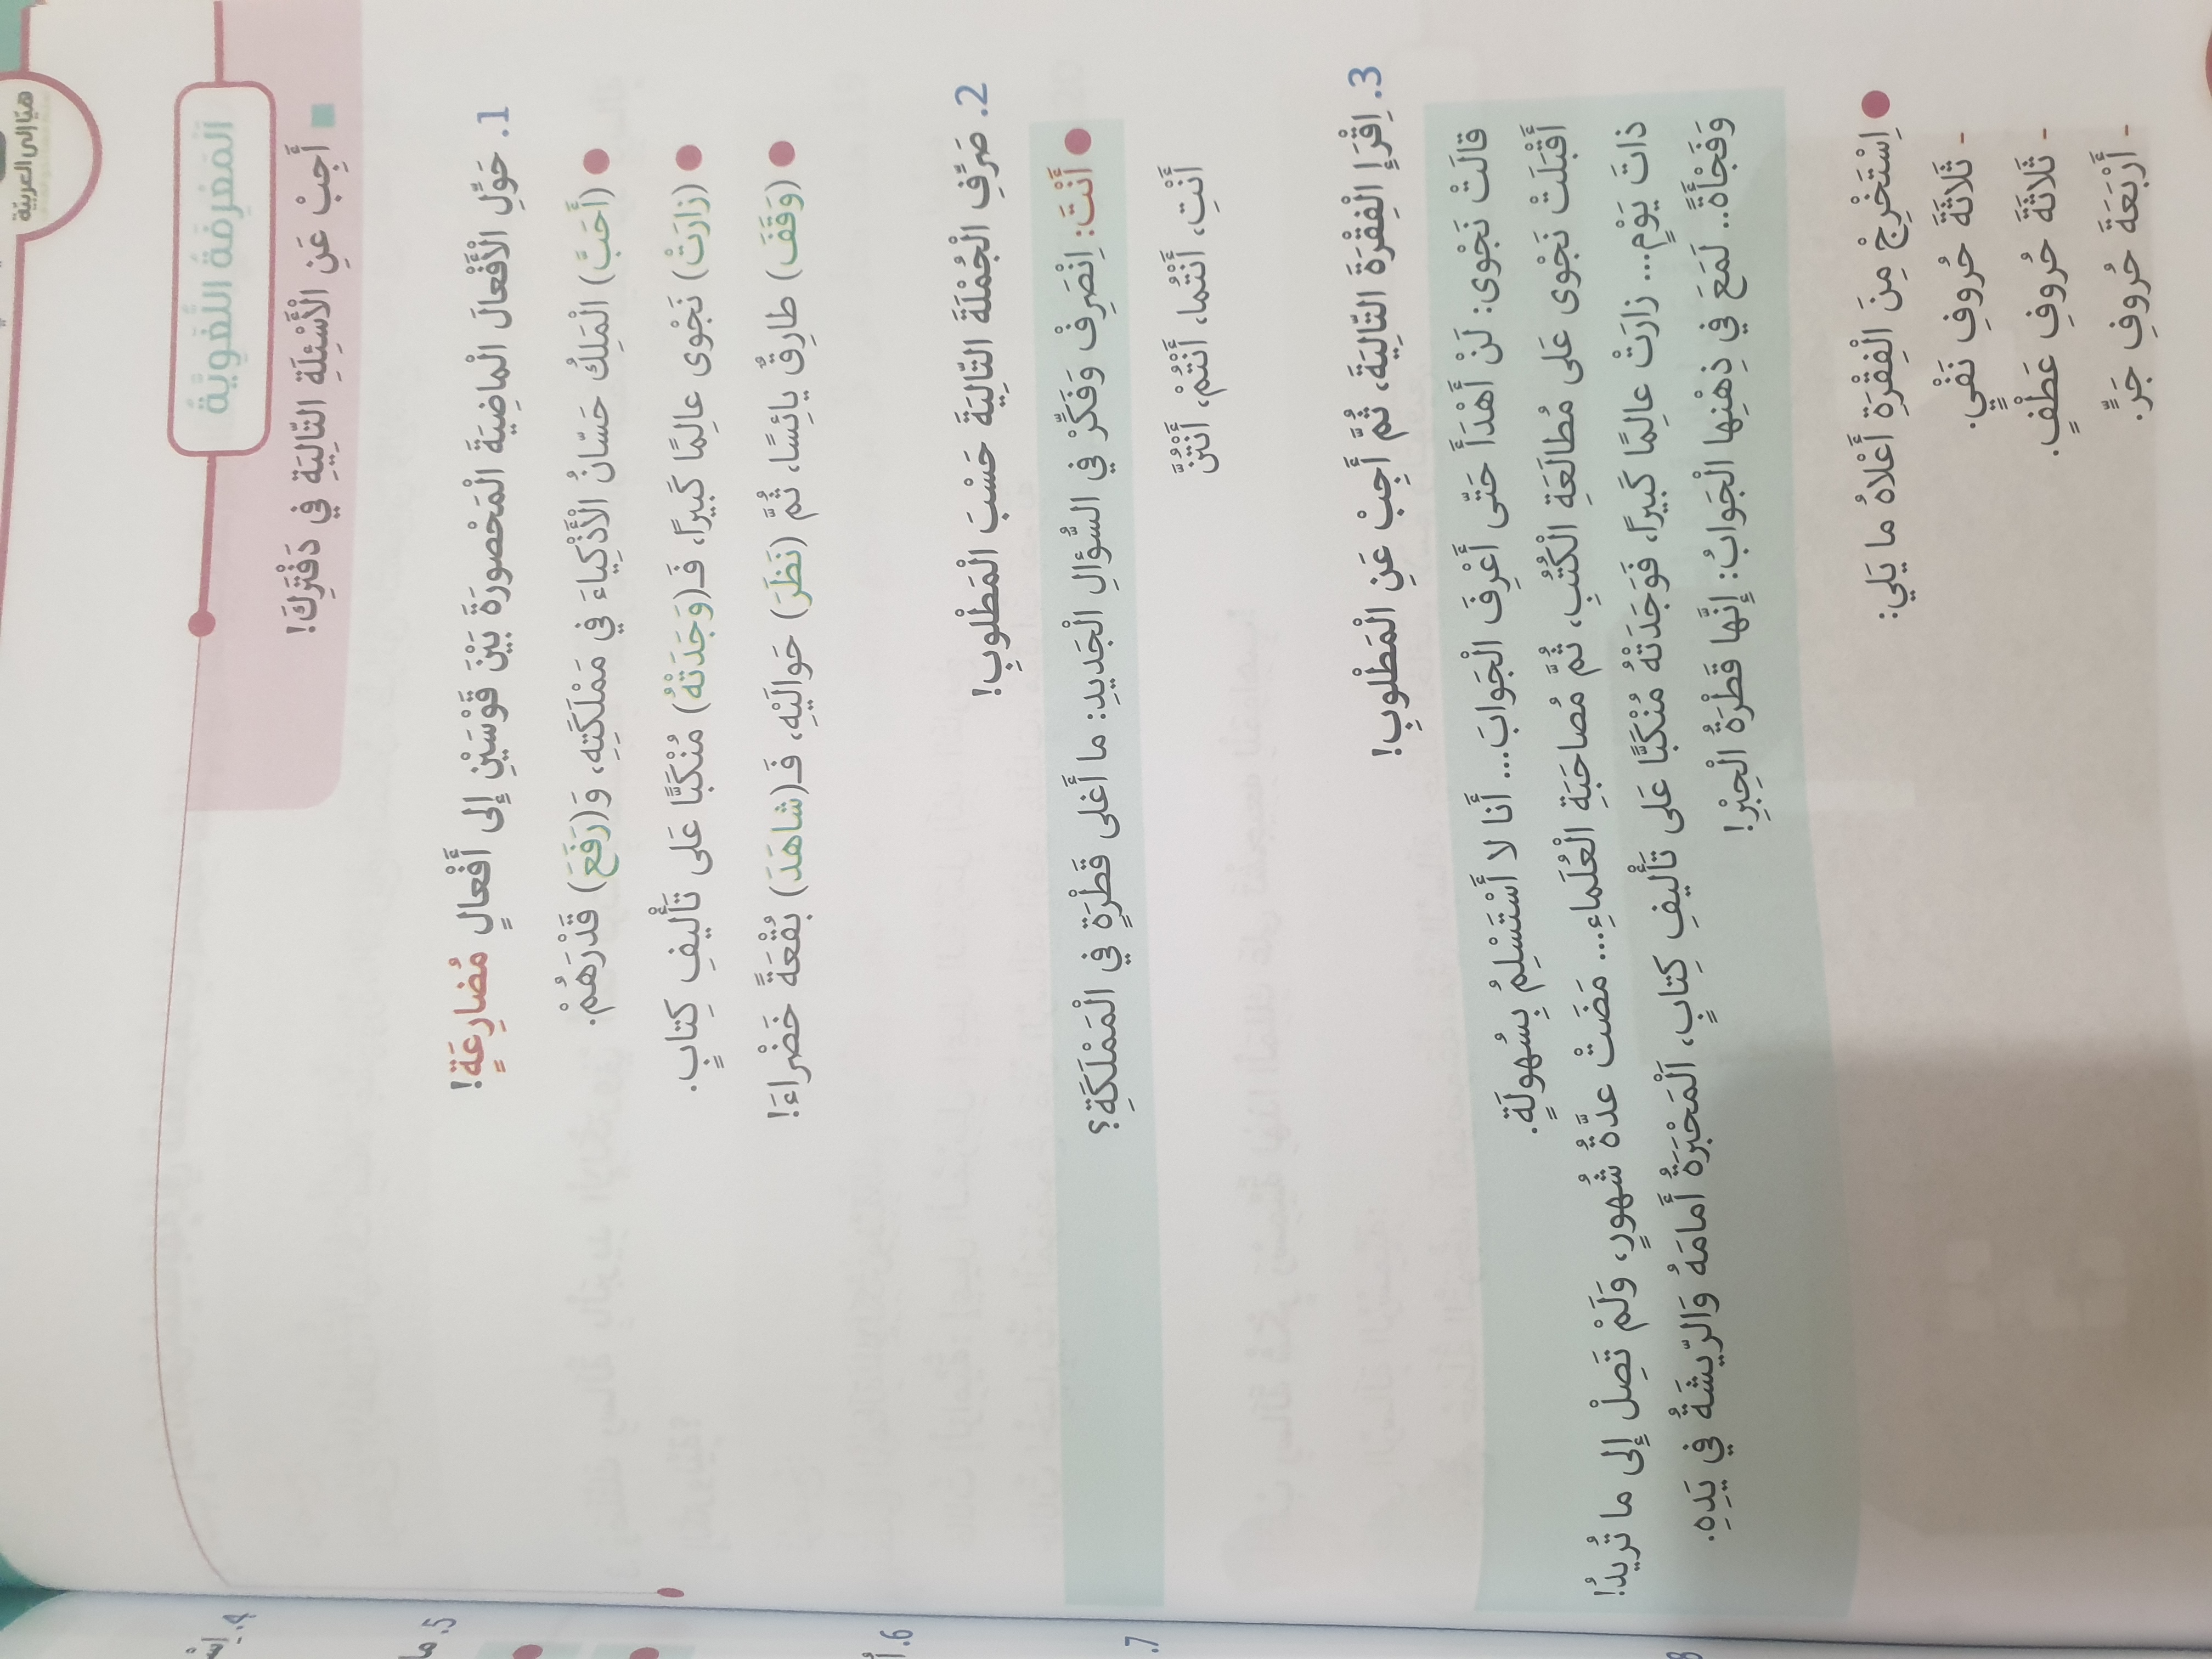 هيّا إلى العربيّة
المَعْرِفَةُ اللُّغَوِيَّةُ
أَجِبْ عَنِ الْأَسْئِلَةِ التّالِيَةِ في دَفْتَرِكَ!
1. حَوِّلِ الْأَفْعالَ الْماضِيَةَ الْمَحْصورَةَ بَيْنَ قَوْسَيْنِ إِلى أَفْعالٍ مُضارِعَةٍ!
(أَحَبَّ) الْمَلِكُ حَسّانُ الْأَذْكِياءَ في مَمْلَكَتِهِ، وَ(رَفَعَ) قَدْرَهُمْ.
(زارَتْ) نَجْوى عالِمًا كَبيرًا، فَـ(وَجَدَتْهُ) مُنْكَبًّا عَلى تَأْليفِ كِتابٍ.
(وَقَفَ) طارِقٌ يائِسًا، ثُمَّ (نَظَرَ) حَوالَيْهِ، فَـ(شاهَدَ) بُقْعَةً خَضْراءَ!
2. صَرِّفِ الْجُمْلَةَ التّالِيَةَ حَسْبَ الْمَطْلوبِ!
أَنْتَ: اِنْصَرِفْ وَفَكِّرْ في السُّؤالِ الْجَديدِ: ما أَغْلى قَطْرَةٍ في الْمَمْلَكَةِ؟
أَنْتِ، أَنْتُما، أَنْتُمْ، أَنْتُنَّ
3. اِقْرَإِ الْفِقْرَةَ التّالِيَةَ، ثُمَّ أَجِبْ عَنِ الْمَطْلوبِ!
قالَتْ نَجْوى: لَنْ أَهْدَأَ حَتّى أَعْرِفَ الْجَوابَ... أَنا لا أَسْتَسْلِمُ بِسُهولَةٍ.
أَقْبَلَتْ نَجْوى عَلى مُطالَعَةِ الْكُتُبِ، ثُمَّ مُصاحَبَةِ الْعُلَماءِ... مَضَتْ عدَّةُ شُهورٍ، وَلَمْ تَصِلْ إِلى ما تُريدُ!
ذاتَ يَوْمٍ... زارَتْ عالِمًا كَبيرًا، فَوَجَدَتْهُ مُنْكَبًّا عَلى تَأْليفِ كِتابٍ، اَلْمَحْبَرَةُ أَمامَهُ وَالرّيشَةُ في يَدِهِ.
وَفَجْأَةً.. لَمَعَ في ذِهْنِها الْجَوابُ: إِنَّها قَطْرَةُ الْحِبْرِ!
اِسْتَخْرِجْ مِنَ الْفِقْرَةِ أَعْلاهُ ما يَلي:
- ثَلاثَةَ حُروفِ نَفْيٍ.
- ثَلاثَةَ حُروفِ عَطْفٍ.
- أَرْبَعَةَ حُروفِ جَرٍّ.
4. اِسْ
5. ما
6. أ
7.
8